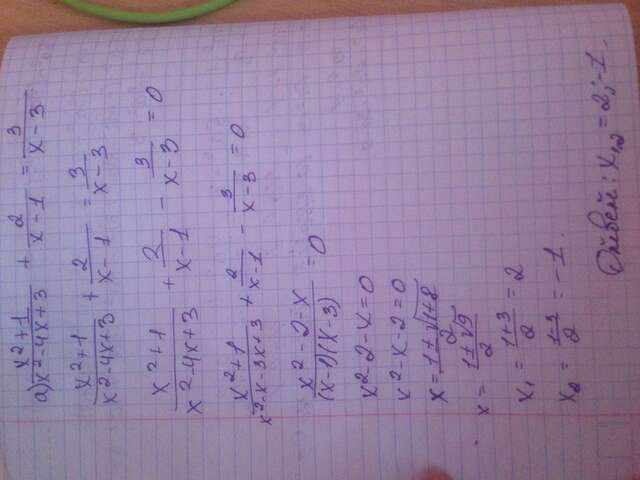 а) (x²+1)/(x²-4x+3) + 2/(x-1) = 3/(x-3)
(x²+1)/(x²-4x+3) + 2/(x-1) = 3/(x-3)
(x²+1)/(x²-4x+3) + 2/(x-1) - 3/(x-3) = 0
(x²+1)/(x²-x-3x+3) + 2/(x-1) - 3/(x-3) = 0
(x²-2-x)/((x-1)(x-3)) = 0
x²-2-x=0
x²-x-2=0
x = (1±√(1+8))/2
x = (1±√9)/2
x₁ = (1+3)/2 = 2
x₂ = (1-3)/2 = -1.
Ответ: x₁,₂ = 2; -1.